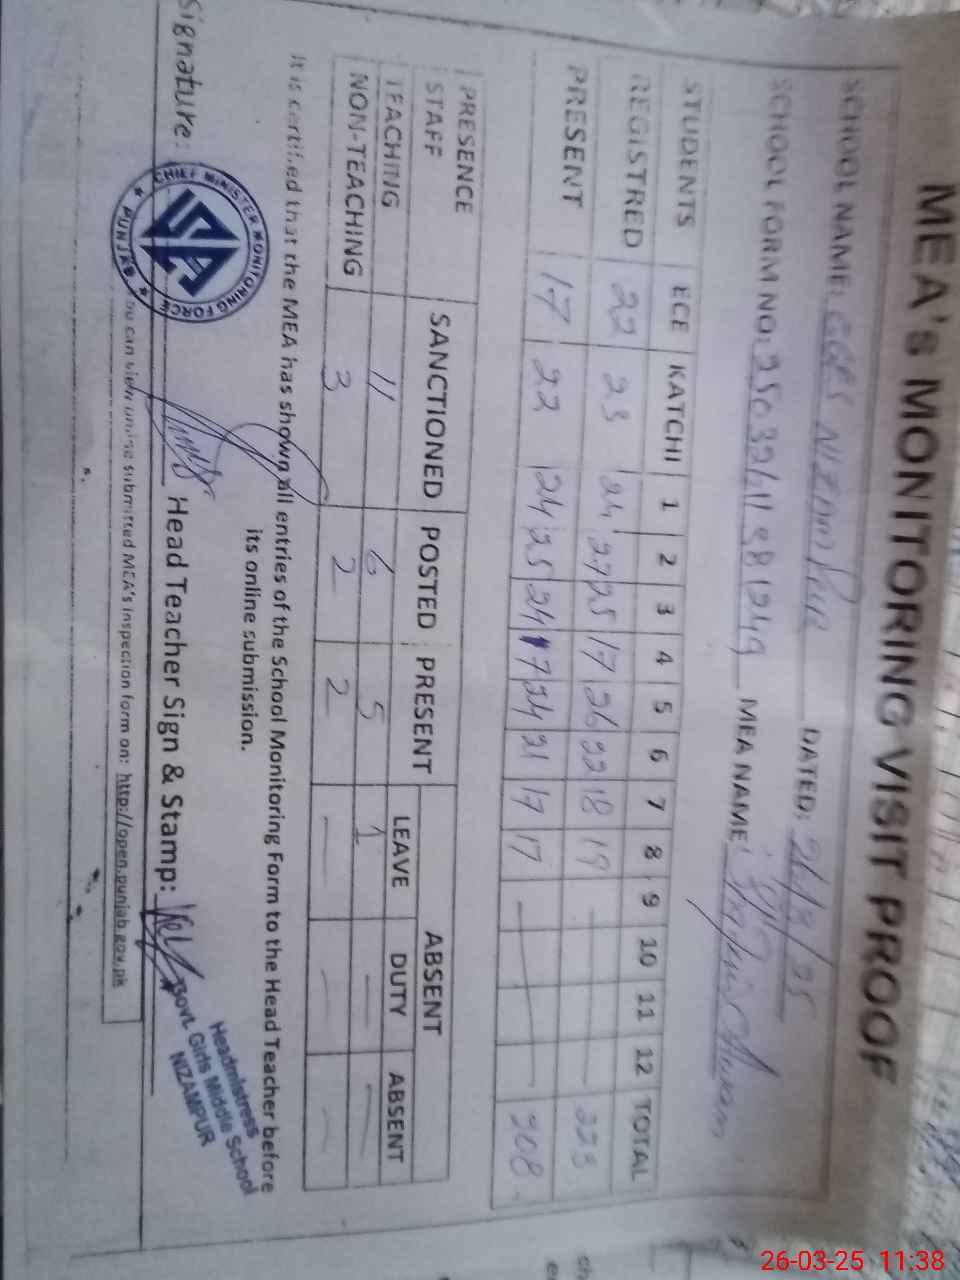 MEA's MONITORING VISIT PROOF
SCHOOL NAME: GGES Nizampur DATED: 26/3/25
SCHOOL FORM NO: MEA NAME:
STUDENTS ECE KATCHI 1 2 3 4 5 6 7 8 9 10 11 12 TOTAL
REGISTRED 22 23 24 27 25 17 26 22 18 19 — 223
PRESENT 17 22 24 25 24 17 24 21 17 17 — 208
PRESENCE SANCTIONED POSTED PRESENT ABSENT
STAFF LEAVE DUTY ABSENT
TEACHING 11 6 5 1 — —
NON-TEACHING 3 2 2 — — —
It is certified that the MEA has shown all entries of the School Monitoring Form to the Head Teacher before
its online submission.
Signature: Head Teacher Sign & Stamp:
CHIEF MINISTER MONITORING FORCE
PUNJAB
Headmistress
Govt. Girls Middle School
NIZAMPUR
You can view online submitted MEA's inspection form on: http://open.punjab.gov.pk
26-03-25 11:38